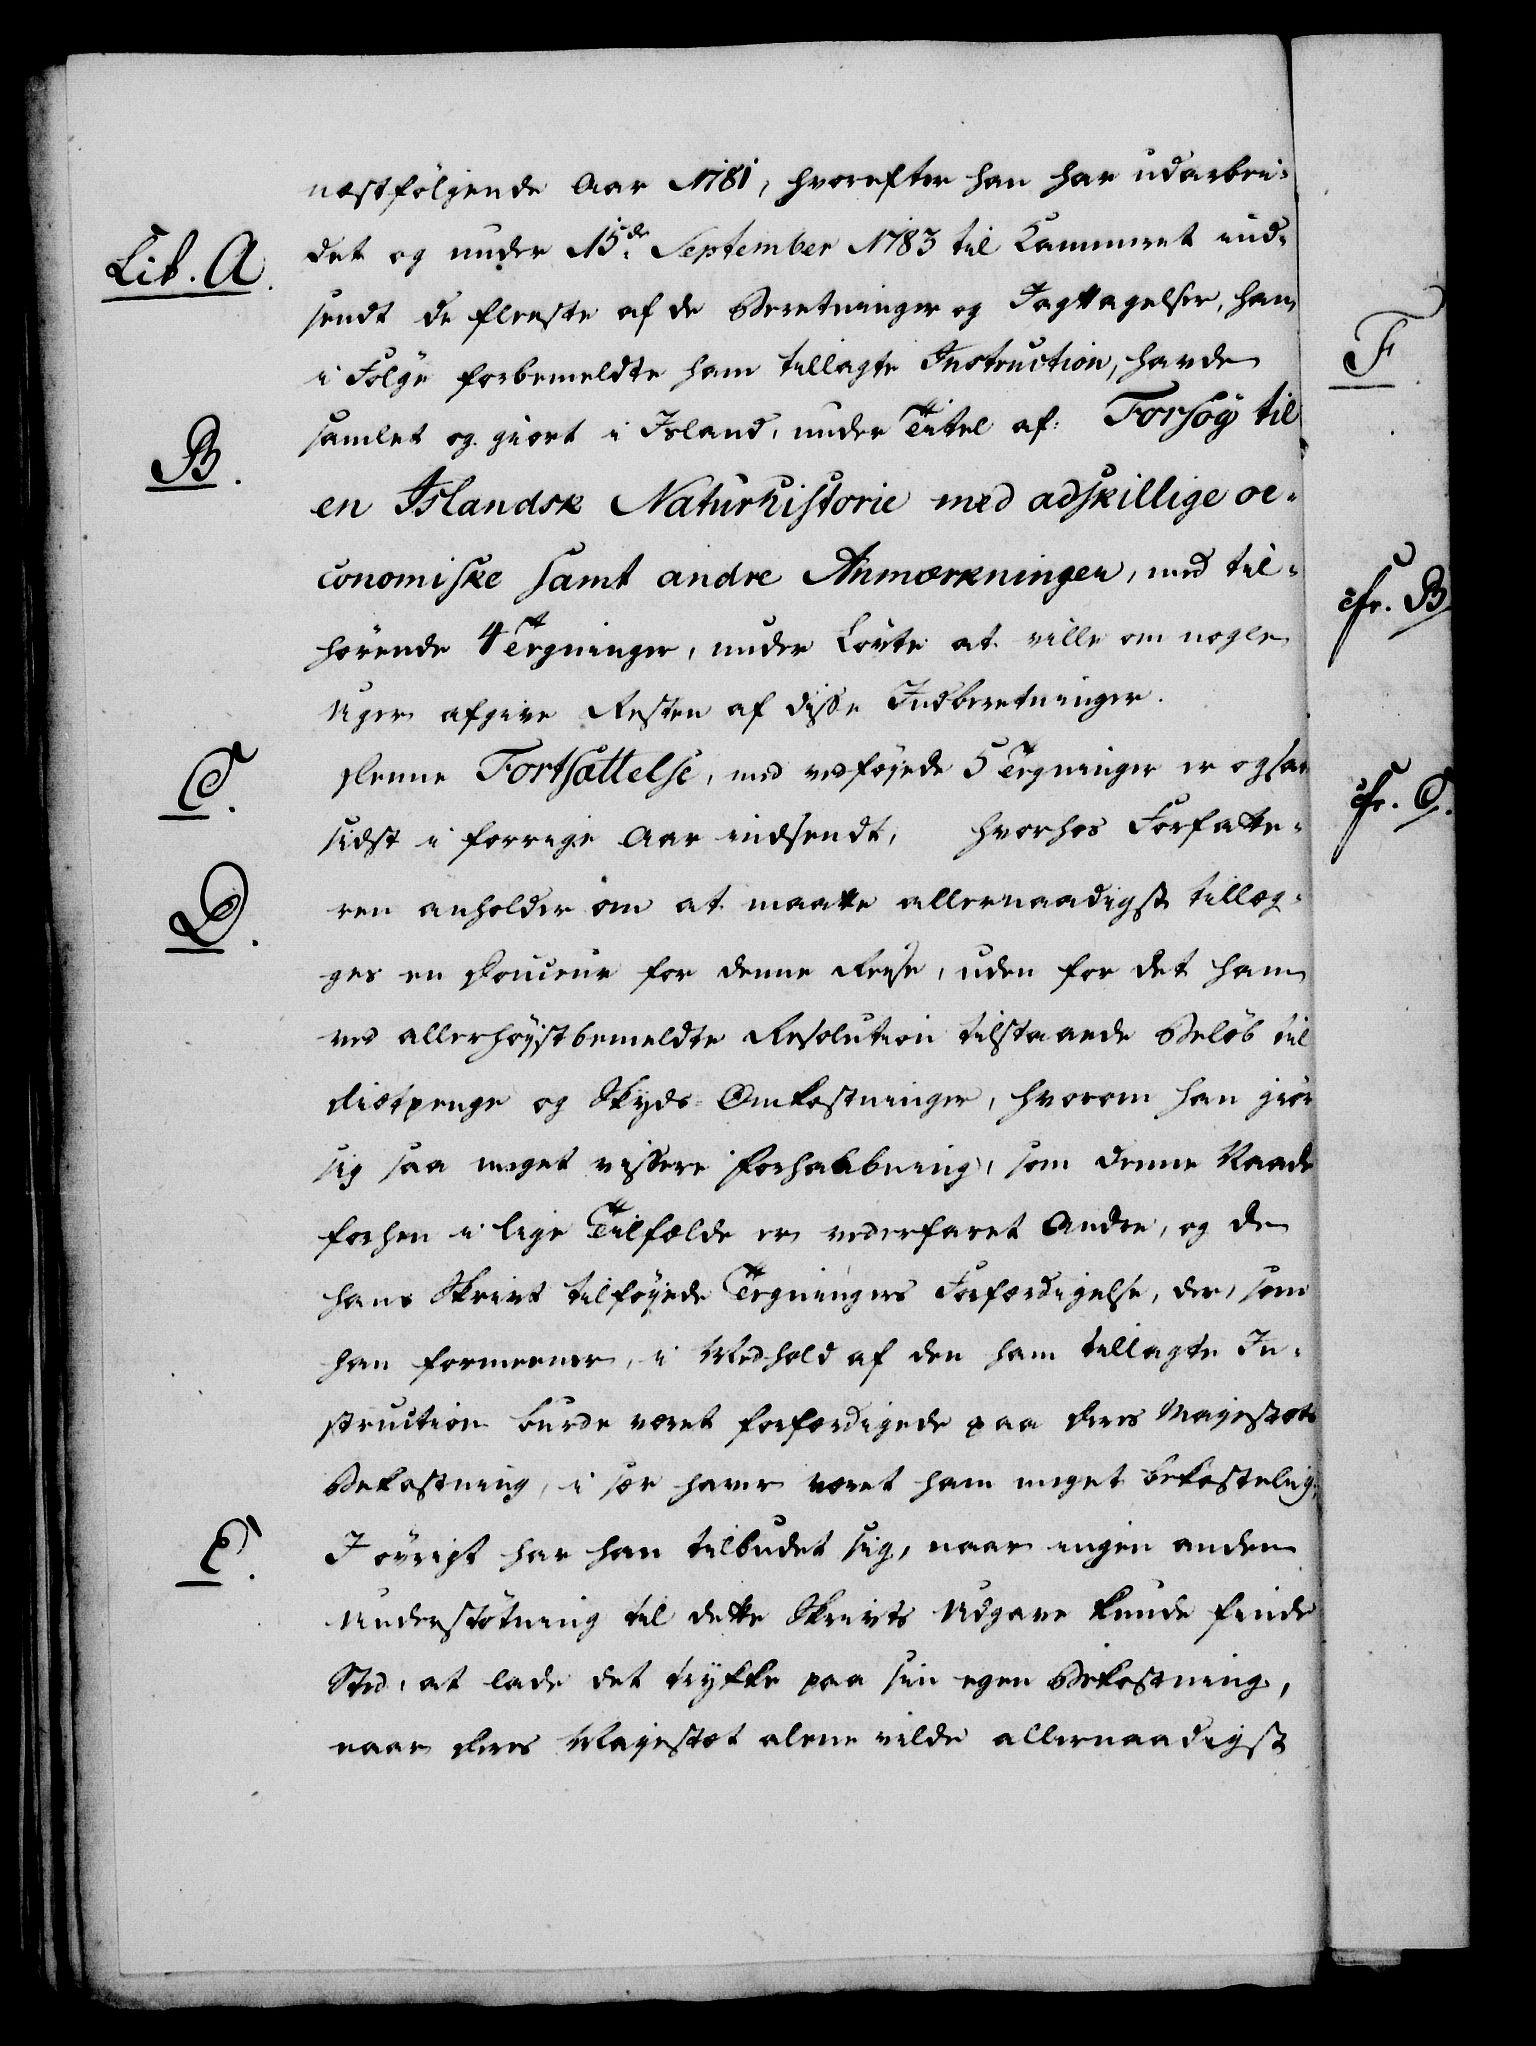 næstfölgende Aar 1781, hvorefter han har udarbei-
Lit. A. det og under 15de September 1783 til Kammeret ind-
sendt de fleeste af de Beretninger og Iagttagelser, han
i Følge forbemeldte ham tillagte Instruction, havde
B. samlet og giort i Island, under Titel af: Forsög til
en Islandsk Naturhistorie med adskillige oe-
conomiske samt andre Anmærkninger, med til-
hörende 4 Tegninger, under Løvte at ville om nogle
Uger afgive Resten af disse Indberetninger.
C. Denne Fortsættelse, med vedföjede 5 Tegninger er ogsaa
sidst i forrige Aar indsendt, hvorhos Forfatte-
D. ren anholder om at maatte allernaadigst tillæg-
ges en Douceur for denne Reise, uden for det ham
ved allerhöystbemeldte Resolution tilstaaede Belöb til
Diætpenge og Skyds-Omkostninger, hvorom han giör
sig saa meget vissere Forhaabning, som denne Naade
forhen i lige Tilfælde er vederfaret Andre, og de
hans Skrivt tilföyede Tegningers Forfærdigelse, der, som
han formeener, i Medhold af den ham tillagte In-
struction burde været forfærdigede paa Deres Majestæts
Bekostning, i sær haver været ham meget bekostelig.
E. I övrigt har han tilbudet sig, naar ingen anden
Understötning til dette Skrivts Udgave kunde finde
Sted, at lade det trykke paa sin egen Bekostning,
naar Deres Majestæt alene vilde allernaadigst
F.
cfr. B
cfr. C.